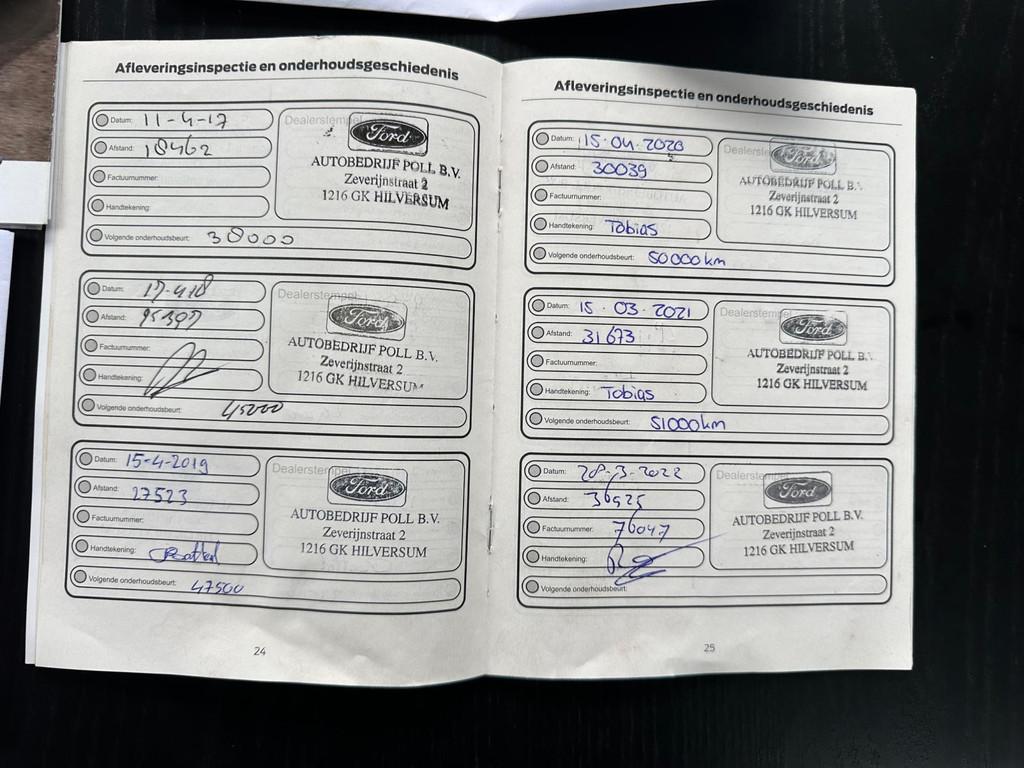 Afleveringsinspectie en onderhoudsgeschiedenis
Datum: 11-4-17
Afstand: 18462
Factuurnummer:
Handtekening:
Volgende onderhoudsbeurt: 38000
Dealerstempel
Ford
AUTOBEDRIJF POLL B.V.
Zeverijnstraat 2
1216 GK HILVERSUM
Datum: 17-418
Afstand:
Factuurnummer:
Handtekening:
Volgende onderhoudsbeurt: 45000
Dealerstempel
Ford
AUTOBEDRIJF POLL B.V.
Zeverijnstraat 2
1216 GK HILVERSUM
Datum: 15-4-2019
Afstand: 27523
Factuurnummer:
Handtekening:
Volgende onderhoudsbeurt: 47500
Dealerstempel
Ford
AUTOBEDRIJF POLL B.V.
Zeverijnstraat 2
1216 GK HILVERSUM
24
Afleveringsinspectie en onderhoudsgeschiedenis
Datum: 15.04.2020
Afstand: 30039
Factuurnummer:
Handtekening: Tobias
Volgende onderhoudsbeurt: 50000km
Dealerstempel
Ford
AUTOBEDRIJF POLL B.V.
Zeverijnstraat 2
1216 GK HILVERSUM
Datum: 15.03.2021
Afstand: 31673
Factuurnummer:
Handtekening: Tobias
Volgende onderhoudsbeurt: 51000km
Dealerstempel
Ford
AUTOBEDRIJF POLL B.V.
Zeverijnstraat 2
1216 GK HILVERSUM
Datum: 28-3-2022
Afstand: 36925
Factuurnummer: 76047
Handtekening:
Volgende onderhoudsbeurt:
Dealerstempel
Ford
AUTOBEDRIJF POLL B.V.
Zeverijnstraat 2
1216 GK HILVERSUM
25